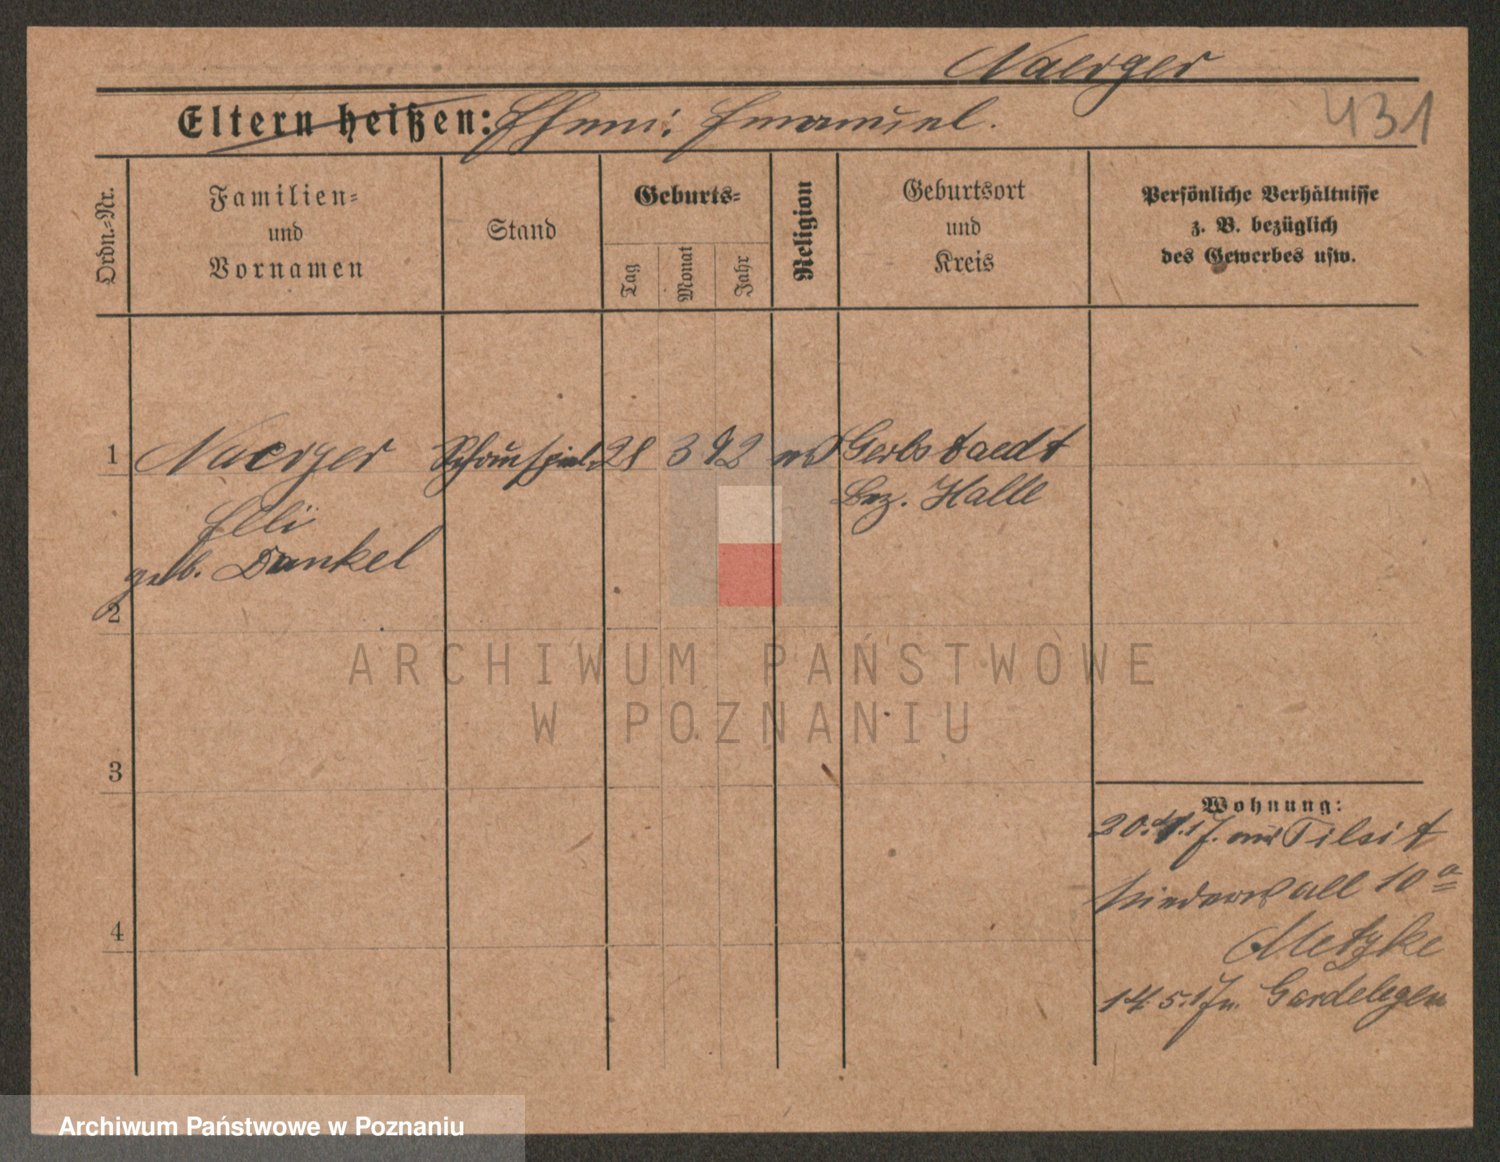 Naerger
Eltern heißen: Ehem: Emanuel.
431
Ordn.-Nr.
Familien-
und
Vornamen
Stand
Geburts-
Tag
Monat
Jahr
Religion
Geburtsort
und
Kreis
Persönliche Verhältnisse
z. B. bezüglich
des Gewerbes usw.
1 Naerger Schauspiel. 28 3 92 Gerbstaedt
Bez. Halle
Elli
geb. Dankel
2
3
4
Wohnung:
20.4.17. aus Tilsit
Niederwall 10a
Metzke
14.5.17 n. Gardelegen
ARCHIWUM PAŃSTWOWE
W POZNANIU
Archiwum Państwowe w Poznaniu